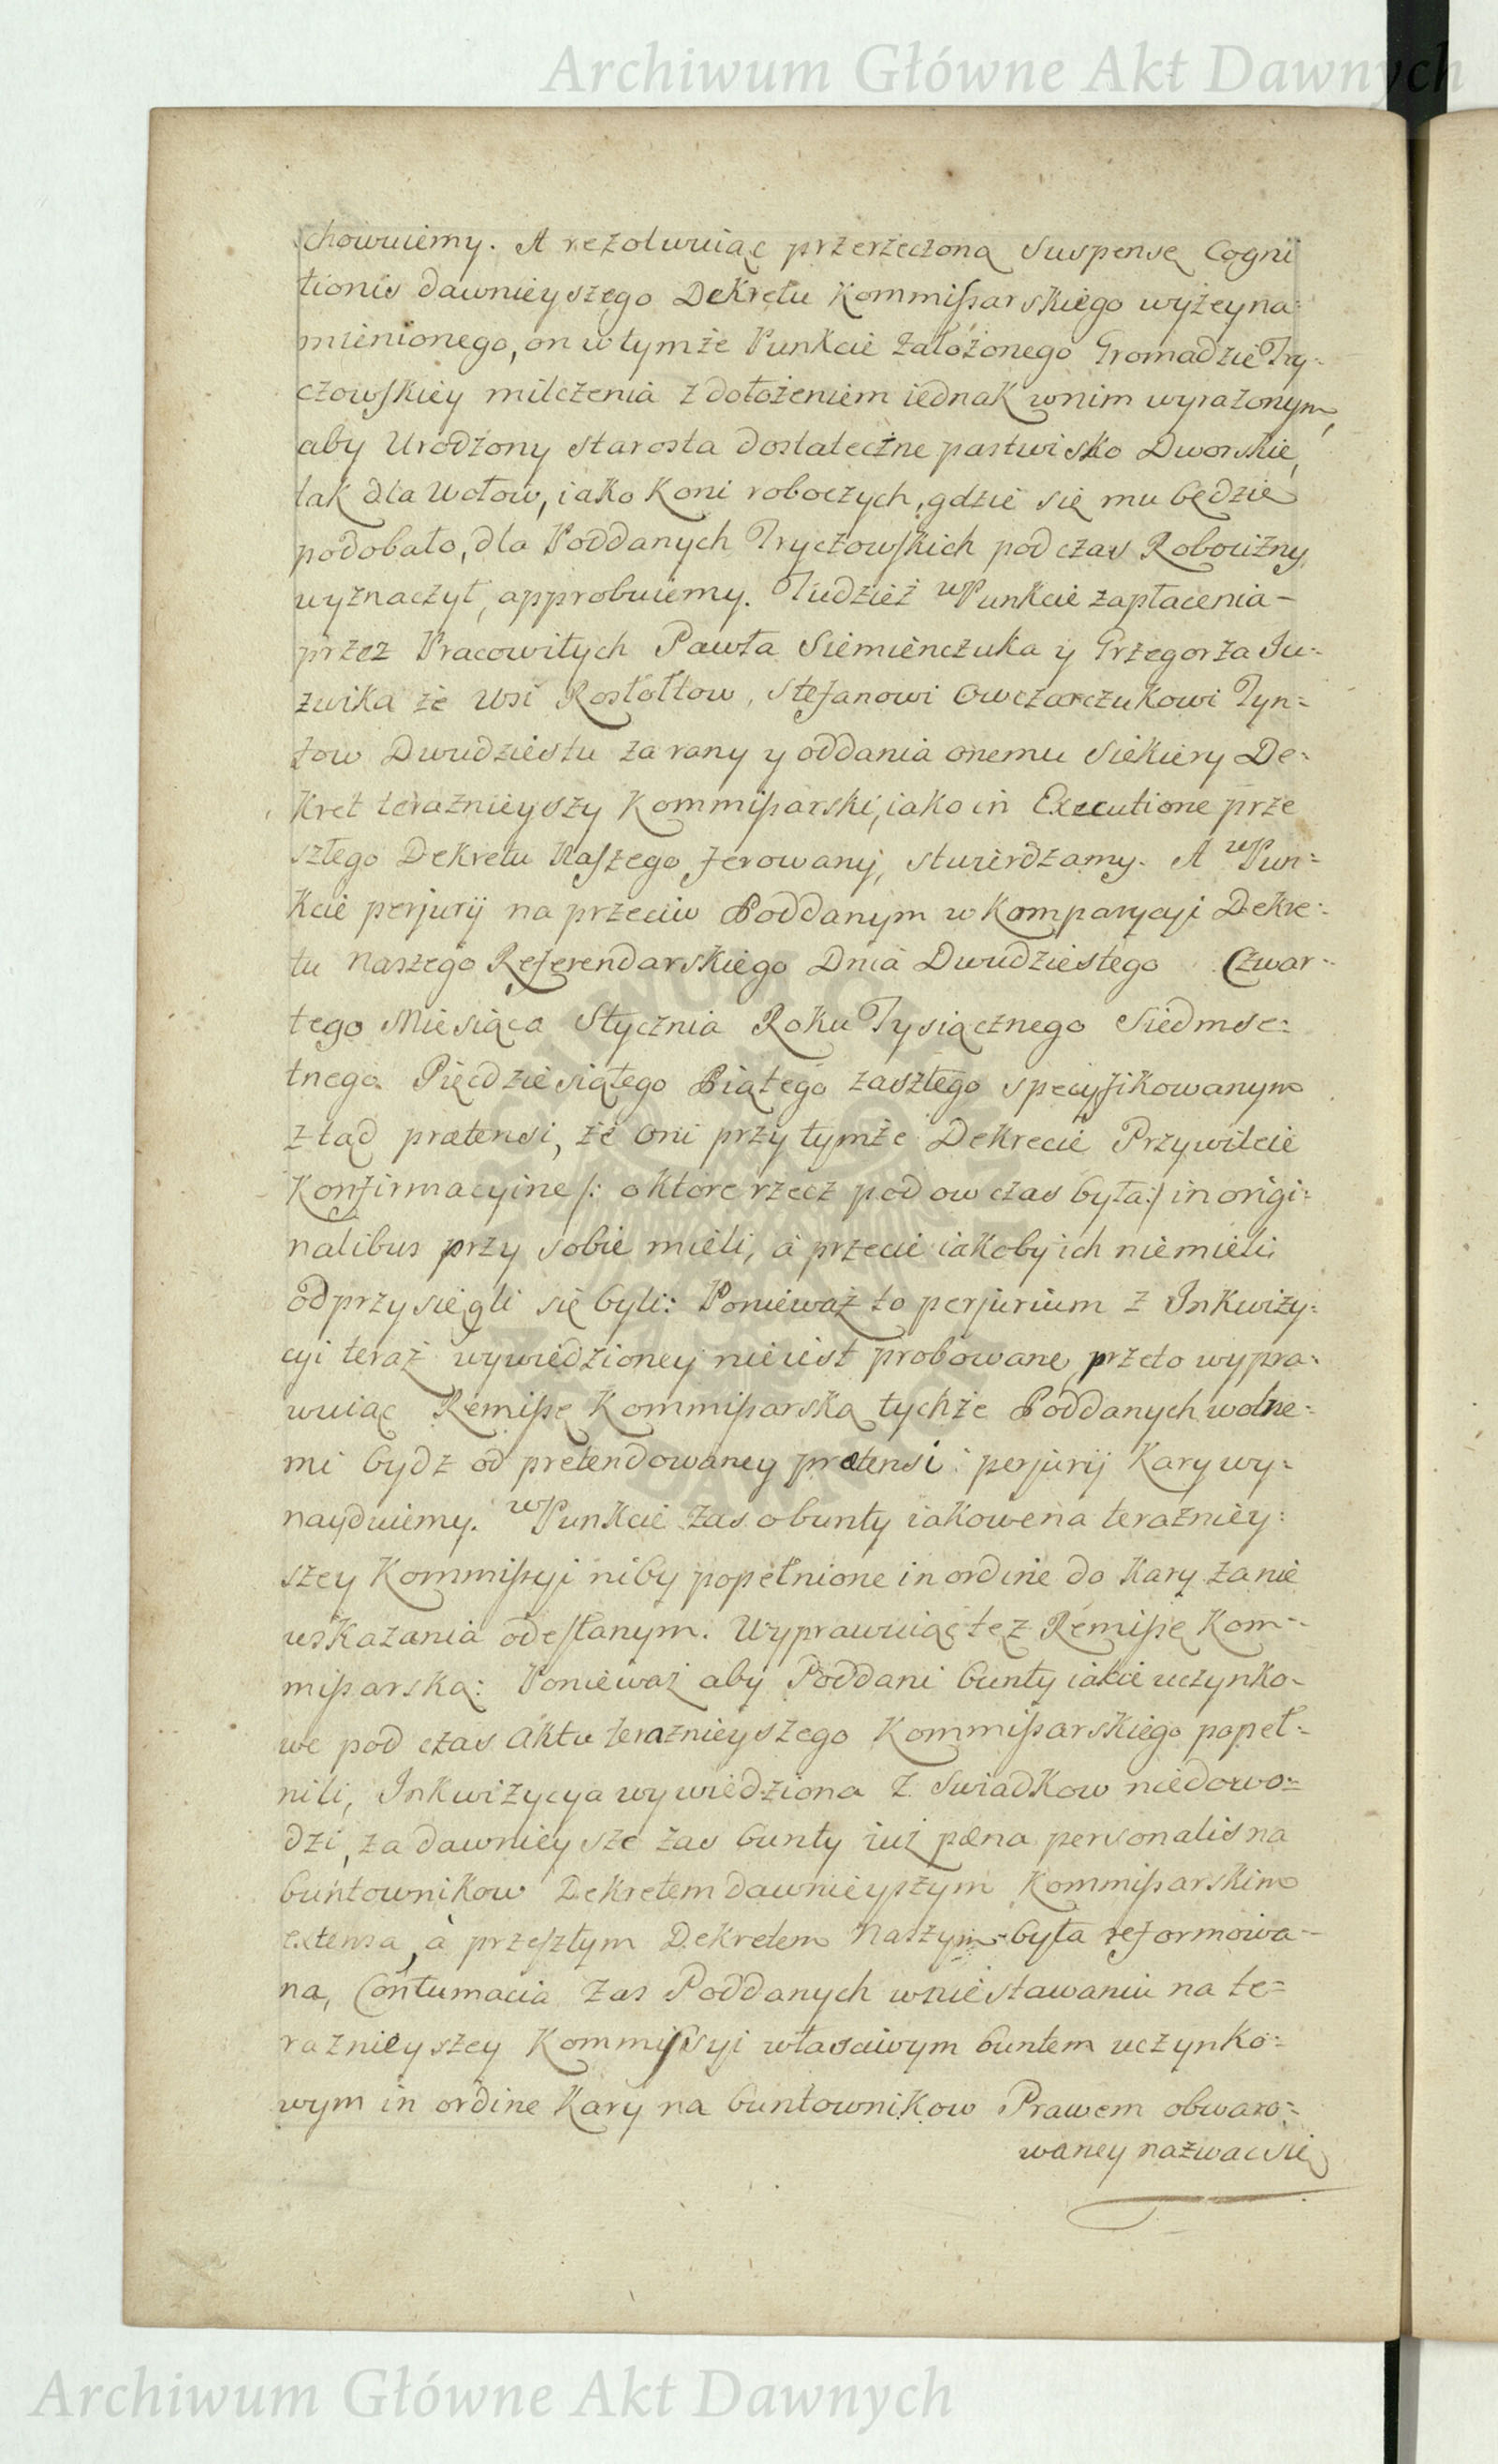 Archiwum Główne Akt Dawnych
chowuiemy. A rezolwuiąc przerzeczoną Suspensę Cogni
tionis dawnieyszego Dekretu Kommissarskiego wyżey na=
mienionego, on w tymże Punkcie założonego Gromadzie Try=
czowskiey milczenia z dołożeniem iednak w nim wyrażonym,
aby Urodzony Starosta dostateczne pastwisko Dworskie,
tak dla Wołow, iako Koni roboczych, gdzie się mu będzie
podobało, dla Poddanych Tryczowskich pod czas Robocizny
wyznaczył, approbuiemy. Tudzież w Punkcie zapłacenia –
przez Pracowitych Pawła Siemienczuka y Grzegorza Ju=
zwika ze Wsi Rostołtow, Stefanowi Owczarczukowi Tyn=
fow Dwudziestu za rany y oddania onemu Siekiery De=
kret teraznieyszy Kommissarski, iako in Executione prze
szłego Dekretu Naszego ferowany, stwierdzamy. A w Pun=
kcie perjurij na przeciw Poddanym w Komparycyi Dekre=
tu Naszego Referendarskiego Dnia Dwudziestego Czwar=
tego Miesiąca Stycznia Roku Tysiącznego Siedmse=
tnego Pięcdziesiątego Piątego zaszłego specyfikowanym
ztąd prætensi, że oni przy tymże Dekrecie Przywileie
Konfirmacyine /: o ktore rzecz pod ow czas była :/ in origi=
nalibus przy sobie mieli, a przecie iakoby ich niemieli
odprzysięgli się byli: Ponieważ to perjurium z Inkwizy=
cyi teraz wywiedzioney nieiest probowane, przeto wypra=
wuiąc Remissę Kommissarską tychże Poddanych wolne=
mi bydz od pretendowaney prætensi perjurij Kary wy=
nayduiemy. w Punkcie zas o bunty iakowe na terazniey=
szey Kommissyi niby popełnione in ordine do Kary za nie
wskazania odesłanym. Wyprawuiąc tez Remissę Kom=
missarską: Ponieważ aby Poddani bunty iakie uczynko=
we pod czas Aktu teraznieyszego Kommissarskiego popeł=
nili, Inkwizycya wywiedziona z Swiadkow niedowo=
dzi, za dawnieysze zas bunty iuż pæna personalis na
buntownikow Dekretem dawnieyszym Kommissarskim
extensa, a przeszłym Dekretem Naszym była reformowa=
na, Contumacia zas Poddanych w niestawaniu na te=
raznieyszey Kommissyi własciwym buntem uczynko=
wym in ordine Kary na buntownikow Prawem obwaro=
waney nazwac się
Archiwum Główne Akt Dawnych